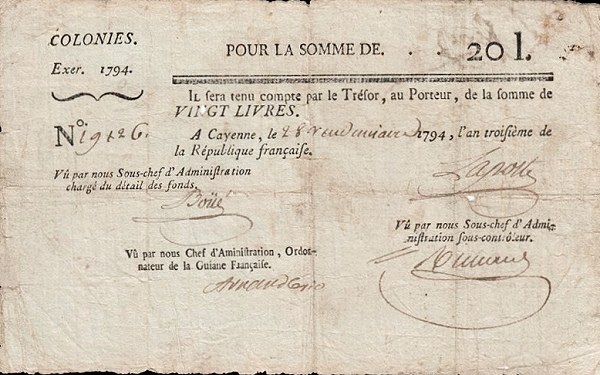 COLONIES.
Exer. 1794.
POUR LA SOMME DE. . . . 20 l.
IL sera tenu compte par le Trésor, au Porteur, de la somme de
VINGT LIVRES.
No. 19426
A Cayenne, le 28 vendemiaire 1794, l'an troisième de
la République française.
Vû par nous Sous-chef d'Administration
chargé du détail des fonds.
Laporte
Boüé
Vû par nous Sous-chef d'Admi-
nistration sous-contrôleur.
Vû par nous Chef d'Aministration, Ordon-
nateur de la Guiane Française.